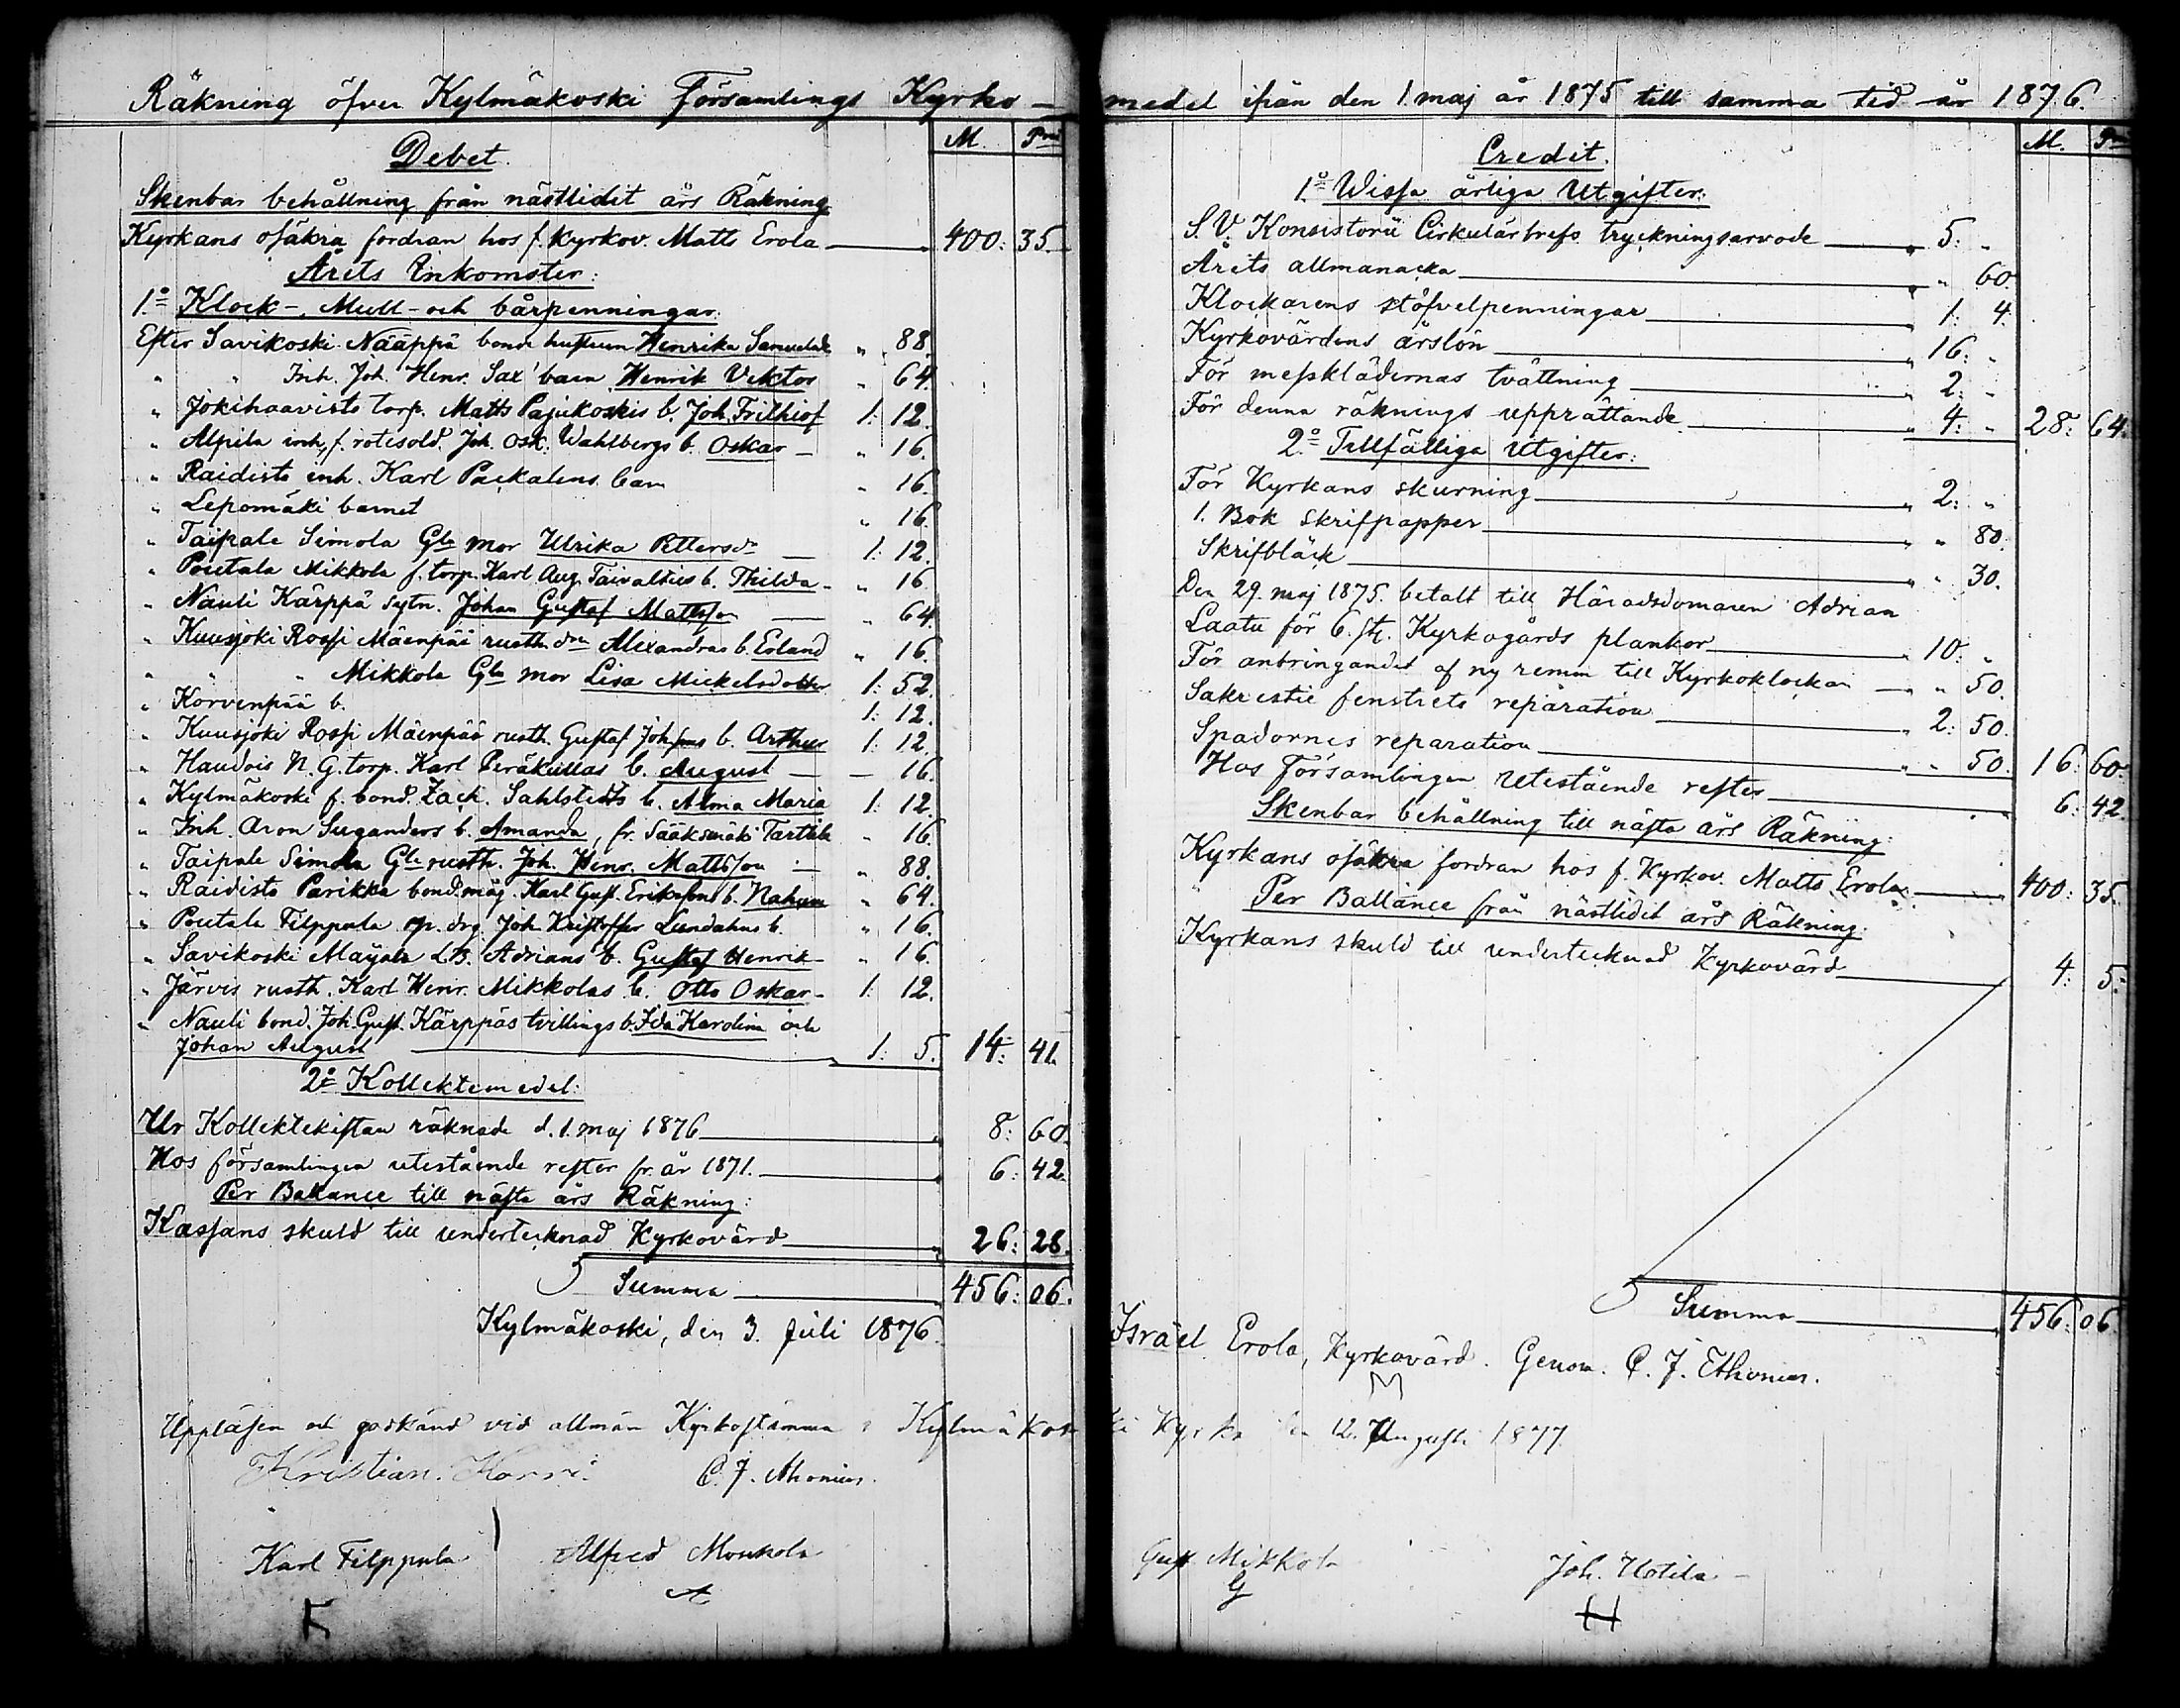 Räkning öfver Kylmäkoski Församlings Kyrko-
Debet.
M. Pni
Skenbar behållning från nästlidit års Räkning
Kyrkans osäkra fordran hos f. Kyrkov. Matts Erola 400: 35.
Årets Inkomster:
1:o Klock-, Mull- och bårpenningar:
Efter Savikoski Nääppä bonde hustrun Henrika Samuelsdr " 88.
" " Inh. Joh. Henr. Sax' barn Henrik Viktor " 64.
" Jokihaavisto torp. Matts Pajukoskis b. Joh. Frithiof 1: 12.
" Alpila inh. f. rotesold. Joh. Osk. Wahlbergs b. Oskar — " 16.
" Raidisto inh. Karl Packalens barn " 16.
" Lepomäki barnet " 16.
" Taipale Simola Gla mor Ulrika Pettersdr — 1: 12.
" Poutala Mikkola f. torp. Karl Aug. Taivalties b. Thilda - " 16
" Nauli Kärppä sytn. Johan Gustaf Mattsson — " 64.
" Kuusjoki Rossi Mäenpää rusth. drn Alexandras b. Erland " 16.
" " " Mikkola Gla mor Lisa Mickelsdotter 1: 52.
" Korvenpää b. 1: 12.
" Kuusjoki Rossi Mäenpää rusth. Gustaf Johssons b. Arthur 1: 12.
" Haudois N. G. torp. Karl Peräkullas b. August — — 16.
" Kylmäkoski f. bond. Zach. Sahlstedts b. Alma Maria 1: 12.
" Inh. Aron Suganders b. Amanda, fr. Sääksmäki Tarttila " 16.
" Taipale Simola Gle rusth. Joh. Henr. Mattsson — " 88.
" Raidisto Parikka bond. måg. Karl Gust. Erikssons b. Nahum " 64.
" Poutala Filppula drg. Joh. Kristoffer Lundahns b. " 16.
" Savikoski Mäyälä L.B. Adrians b. Gustaf Henrik " 16.
" Järvis rusth. Karl Henr. Mikkolas b. Otto Oskar - 1: 12.
" Nauli bond. Joh. Gust. Kärppäs tvillings b. Ida Karolina och
Johan August 1: 5. 14: 41.
2:o Kollektemedel:
Ur Kollektekistan räknade d. 1. maj 1876 8: 60.
Hos församlingen utestående rester fr. år 1871. 6: 42.
Per Ballance till nästa års Räkning:
Kassans skuld till undertecknad Kyrkovärd 26: 28.
Summa 456: 06.
Kylmäkoski, den 3. Juli 1876.
Uppläsen och godkänd vid allmän Kyrkostämma i Kylmäkos
Kristian. Korri.
C. J. Ahonius.
Karl Filppula
Alfred Monkola
A
medel ifrån den 1. maj år 1875 till samma tid år 1876.
Credit.
M. Pni
1:o Wissa årliga Utgifter:
S. V. Konsistorii Cirkulärbrefs tryckningsarvode " 5: "
Årets allmanacka " " 60.
Klockarens stöfvelpenningar " 1: 4.
Kyrkovärdens årslön " 16: "
För messklädernas tvättning " 2: "
För denna räknings upprättande " 4: " 28: 64.
2:o Tillfälliga Utgifter:
För Kyrkans skurning " 2: "
1. Bok skrifpapper " " 80.
Skrifbläck " " 30.
Den 29. maj 1875. betalt till Häradsdomaren Adrian
Laatu för 6. st. Kyrkogårds plankor " 10: "
För anbringandet af ny remm till Kyrkoklockan — " " 50.
Sakrestie fenstrets reparation " 2: 50.
Spadornes reparation " " 50. 16: 60.
Hos Församlingen Utestående rester 6: 42.
Skenbar behållning till nästa års Räkning:
Kyrkans osäkra fordran hos f. Kyrkov. Matts Erola 400: 35.
Per Ballance från nästlidit års Räkning:
Kyrkans skuld till undertecknad Kyrkovärd 4: 5.
Summa 456: 06.
Israel Erola, Kyrkovärd. Genom. C. J. Ahonius.
ki Kyrka den 12. Augusti 1877.
Gust. Mikkola
G
Joh. Uotila
H